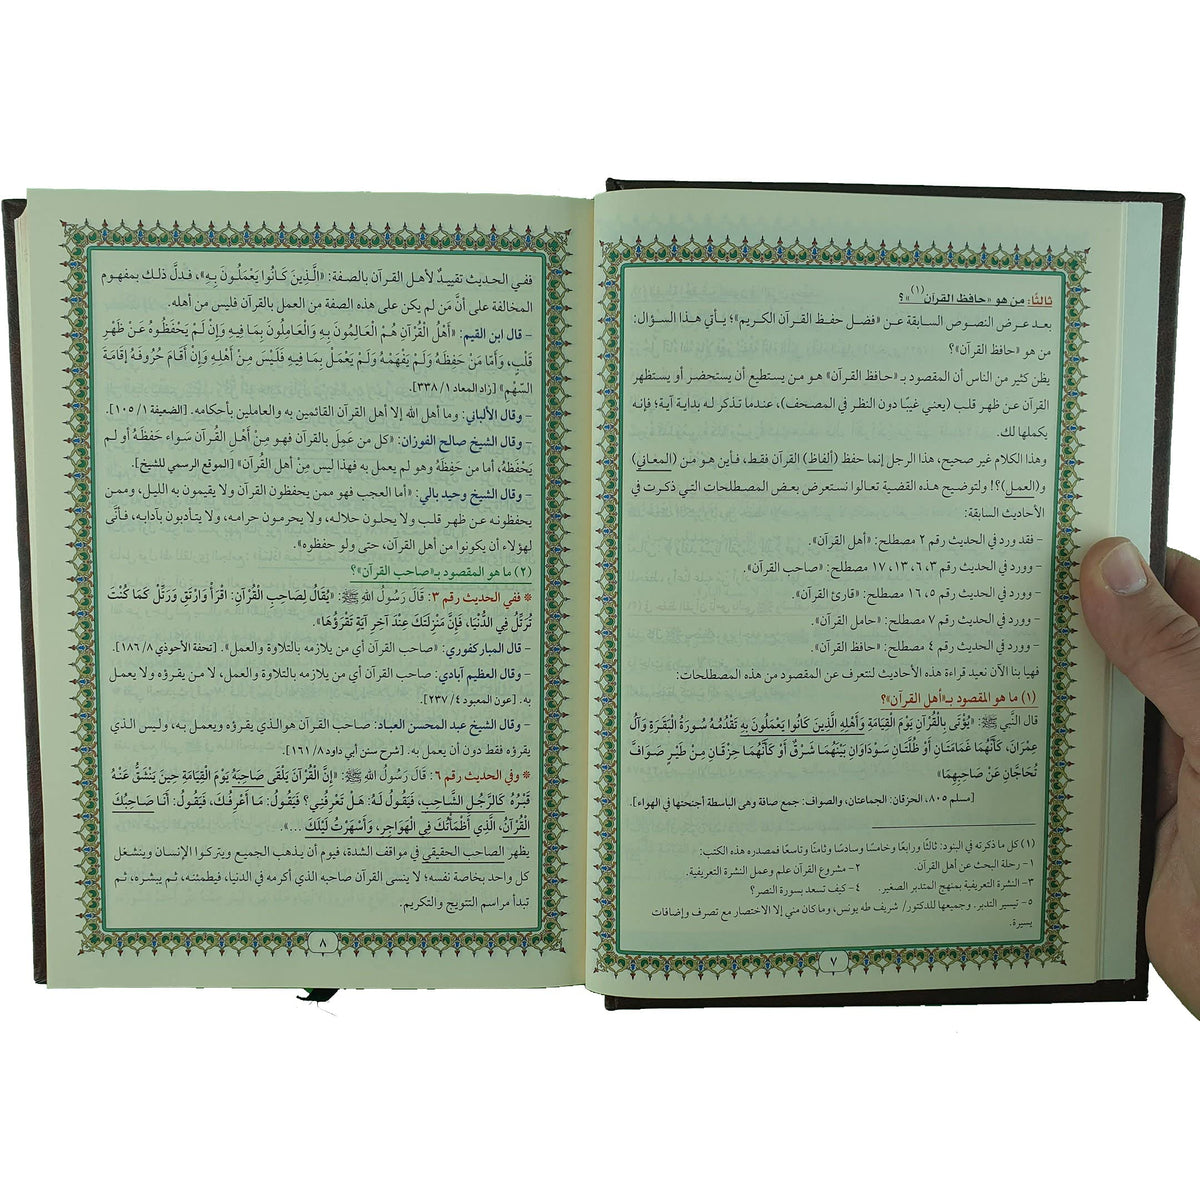 ثالثًا: من هو «حافظ القرآن(١)»؟
بعد عرض النصوص السابقة عن «فضل حفظ القرآن الكريم»؛ يأتي هذا السؤال:
من هو «حافظ القرآن»؟
يظن كثير من الناس أن المقصود بـ «حافظ القرآن» هو من يستطيع أن يستحضر أو يستظهر
القرآن عن ظهر قلب (يعني غيبًا دون النظر في المصحف)، عندما تذكر له بداية آية؛ فإنه
يكملها لك.
وهذا الكلام غير صحيح، هذا الرجل إنما حفظ (ألفاظ) القرآن فقط، فأين هو من (المعاني)
و(العمل)؟! ولتوضيح هذه القضية تعالوا نستعرض بعض المصطلحات التي ذكرت في
الأحاديث السابقة:
- فقد ورد في الحديث رقم ٢ مصطلح: «أهل القرآن».
- وورد في الحديث رقم ٣، ٦، ١٣، ١٧ مصطلح: «صاحب القرآن».
- وورد في الحديث رقم ٥، ١٦ مصطلح: «قارئ القرآن».
- وورد في الحديث رقم ٧ مصطلح: «حامل القرآن».
- وورد في الحديث رقم ٤ مصطلح: «حافظ القرآن».
فهيا بنا الآن نعيد قراءة هذه الأحاديث لنتعرف عن المقصود من هذه المصطلحات:
(١) ما هو المقصود بـ«أهل القرآن»؟
قال النبي ﷺ: «يُؤْتَى بِالْقُرْآنِ يَوْمَ الْقِيَامَةِ وَأَهْلِهِ الَّذِينَ كَانُوا يَعْمَلُونَ بِهِ تَقْدُمُهُ سُورَةُ الْبَقَرَةِ وَآلُ
عِمْرَانَ، كَأَنَّهُمَا غَمَامَتَانِ أَوْ ظُلَّتَانِ سَوْدَاوَانِ بَيْنَهُمَا شَرْقٌ أَوْ كَأَنَّهُمَا حِزْقَانِ مِنْ طَيْرٍ صَوَافَّ
تُحَاجَّانِ عَنْ صَاحِبِهِمَا»
[مسلم ٨٠٥، الحزقان: الجماعتان، والصواف: جمع صافة وهى الباسطة أجنحتها في الهواء].
(١) كل ما ذكرته في البنود: ثالثًا ورابعًا وخامسًا وسادسًا وثامنًا وتاسعًا فمصدره هذه الكتب:
١- رحلة البحث عن أهل القرآن. ٢- مشروع القرآن علم وعمل النشرة التعريفية.
٣- النشرة التعريفية بمنهج المتدبر الصغير. ٤- كيف تسعد بسورة النصر؟
٥- تيسير التدبر. وجميعها للدكتور/ شريف طه يونس، وما كان مني إلا الاختصار مع تصرف وإضافات
يسيرة.
٧
ففي الحديث تقييدٌ لأهل القرآن بالصفة: «الَّذِينَ كَانُوا يَعْمَلُونَ بِهِ»، فدلَّ ذلك بمفهوم
المخالفة على أنَّ مَن لم يكن على هذه الصفة من العمل بالقرآن فليس من أهله.
- قال ابن القيم: «أَهْلُ الْقُرْآنِ هُمُ الْعَالِمُونَ بِهِ وَالْعَامِلُونَ بِمَا فِيهِ وَإِنْ لَمْ يَحْفَظُوهُ عَنْ ظَهْرِ
قَلْبٍ، وَأَمَّا مَنْ حَفِظَهُ وَلَمْ يَفْهَمْهُ وَلَمْ يَعْمَلْ بِمَا فِيهِ فَلَيْسَ مِنْ أَهْلِهِ وَإِنْ أَقَامَ حُرُوفَهُ إِقَامَةَ
السَّهْمِ» [زاد المعاد ١/ ٣٣٨].
- وقال الألباني: وما أهل الله إلا أهل القرآن القائمين به والعاملين بأحكامه. [الضعيفة ١/ ١٠٥].
- وقال الشيخ صالح الفوزان: «كل من عَمِلَ بالقرآن فهو مِنْ أَهْلِ القُرآن سَواء حَفِظَهُ أو لم
يَحْفَظْهُ، أما من حَفِظَهُ وهو لم يعمل به فهذا ليس مِنْ أهْلِ القُرآن» [الموقع الرسمي للشيخ].
- وقال الشيخ وحيد بالي: «أما العجب فهو ممن يحفظون القرآن ولا يقيمون به الليل، وممن
يحفظونه عن ظهر قلب ولا يحلون حلاله، ولا يحرمون حرامه، ولا يتأدبون بآدابه، فـأنَّى
لهؤلاء أن يكونوا من أهل القرآن، حتى ولو حفظوه».
(٢) ما هو المقصود بـ«صاحب القرآن»؟
* ففي الحديث رقم ٣: قَالَ رَسُولُ اللهِ ﷺ: «يُقَالُ لِصَاحِبِ الْقُرْآنِ: اقْرَأْ وَارْتَقِ وَرَتِّلْ كَمَا كُنْتَ
تُرَتِّلُ فِي الدُّنْيَا، فَإِنَّ مَنْزِلَتَكَ عِنْدَ آخِرِ آيَةٍ تَقْرَؤُهَا».
- قال المباركفوري: «صاحب القرآن أي من يلازمه بالتلاوة والعمل». [تحفة الأحوذي ٨/ ١٨٦].
- وقال العظيم آبادي: صاحب القرآن أي من يلازمه بالتلاوة والعمل، لا من يقرؤه ولا يعمل
به. [عون المعبود ٤/ ٢٣٧].
- وقال الشيخ عبد المحسن العباد: صاحب القرآن هو الذي يقرؤه ويعمل به، وليس الذي
يقرؤه فقط دون أن يعمل به. [شرح سنن أبي داود ٨/ ١٦١].
* وفي الحديث رقم ٦: قَالَ رَسُولُ اللهِ ﷺ: «إِنَّ الْقُرْآنَ يَلْقَى صَاحِبَهُ يَوْمَ الْقِيَامَةِ حِينَ يَنْشَقُّ عَنْهُ
قَبْرُهُ كَالرَّجُلِ الشَّاحِبِ، فَيَقُولُ لَهُ: هَلْ تَعْرِفُنِي؟ فَيَقُولُ: مَا أَعْرِفُكَ، فَيَقُولُ: أَنَا صَاحِبُكَ
الْقُرْآنُ، الَّذِي أَظْمَأْتُكَ فِي الْهَوَاجِرِ، وَأَسْهَرْتُ لَيْلَكَ ...».
يظهر الصاحب الحقيقي في مواقف الشدة، فيوم أن يذهب الجميع ويتركوا الإنسان وينشغل
كل واحد بخاصة نفسه؛ لا ينسى القرآن صاحبه الذي أكرمه في الدنيا، فيطمئنه، ثم يبشره، ثم
تبدأ مراسم التتويج والتكريم.
٨